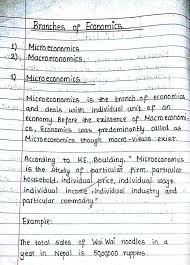 Branches of Economics
1) Microeconomics
2) Macroeconomics
1) Microeconomics
Microeconomics is the branch of economics
and deals with individual unit of an
economy. Before the existence of Macroeconomi-
cs, Economics was predominantly called as
Microeconomics though macro-views exist.
According to K.E. Boulding, "Microeconomics
is the study of particular firm, particular
household, individual price, individual wage,
individual income, individual industry and
particular commodity."
Example:
The total sales of Wai Wai noodles in a
year in Nepal is 500000 ruppers.